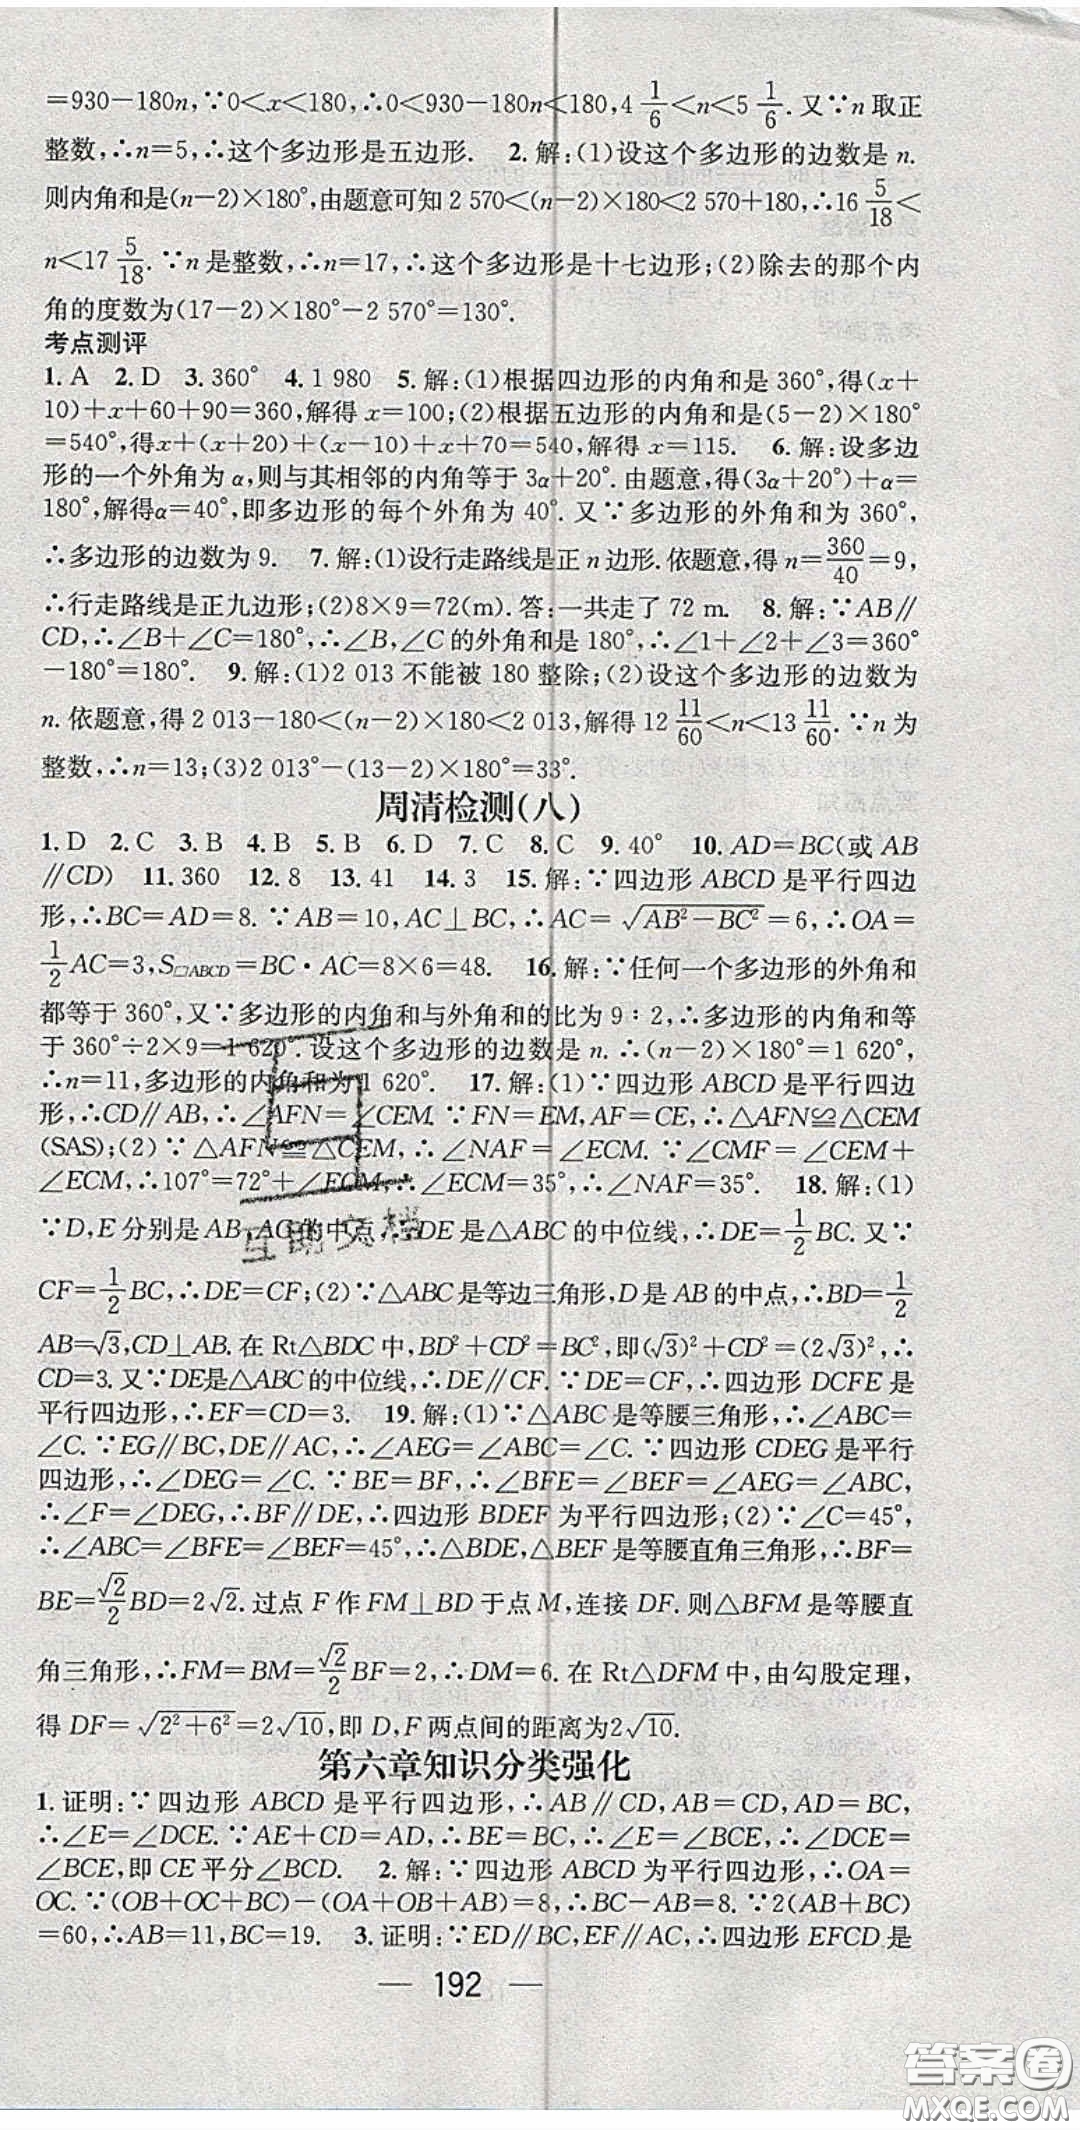 =930-180n,∵0<x<180,∴0<930-180n<180,4 1/6<n<5 1/6.又∵n取正
整数,∴n=5,∴这个多边形是五边形. 2.解:(1)设这个多边形的边数是n.
则内角和是(n-2)×180°,由题意可知2 570<(n-2)×180<2 570+180,∴16 5/18<
n<17 5/18.∵n是整数,∴n=17,∴这个多边形是十七边形;(2)除去的那个内
角的度数为(17-2)×180°-2 570°=130°.
考点测评
1.A 2.D 3.360° 4.1 980 5.解:(1)根据四边形的内角和是360°,得(x+
10)+x+60+90=360,解得x=100;(2)根据五边形的内角和是(5-2)×180°
=540°,得x+(x+20)+(x-10)+x+70=540,解得x=115. 6.解:设多边
形的一个外角为α,则与其相邻的内角等于3α+20°.由题意,得(3α+20°)+α=
180°,解得α=40°,即多边形的每个外角为40°.又∵多边形的外角和为360°,
∴多边形的边数为9. 7.解:(1)设行走路线是正n边形.依题意,得n=360/40=9,
∴行走路线是正九边形;(2)8×9=72(m).答:一共走了72 m. 8.解:∵AB∥
CD,∴∠B+∠C=180°,∴∠B,∠C的外角和是180°,∴∠1+∠2+∠3=360°
-180°=180°. 9.解:(1)2 013不能被180整除;(2)设这个多边形的边数为
n.依题意,得2 013-180<(n-2)×180<2 013,解得12 11/60<n<13 11/60.∵n为
整数,∴n=13;(3)2 013°-(13-2)×180°=33°.
周清检测(八)
1.D 2.C 3.B 4.B 5.B 6.D 7.C 8.C 9.40° 10.AD=BC(或AB
∥CD) 11.360 12.8 13.41 14.3 15.解:∵四边形ABCD是平行四边
形,∴BC=AD=8.∵AB=10,AC⊥BC,∴AC=√(AB²-BC²)=6,∴OA=
1/2AC=3,S□ABCD=BC·AC=8×6=48. 16.解:∵任何一个多边形的外角和
都等于360°,又∵多边形的内角和与外角和的比为9∶2,∴多边形的内角和等
于360°÷2×9=1 620°.设这个多边形的边数是n.∴(n-2)×180°=1 620°,
∴n=11,多边形的内角和为1 620°. 17.解:(1)∵四边形ABCD是平行四边
形,∴CD∥AB,∴∠AFN=∠CEM.∵FN=EM,AF=CE,∴△AFN≌△CEM
(SAS);(2)∵△AFN≌△CEM,∴∠NAF=∠ECM.∵∠CMF=∠CEM+
∠ECM,∴107°=72°+∠ECM,∴∠ECM=35°,∴∠NAF=35°. 18.解:(1)
∵D,E分别是AB,AC的中点,∴DE是△ABC的中位线,∴DE=1/2BC.又∵
CF=1/2BC,∴DE=CF;(2)∵△ABC是等边三角形,D是AB的中点,∴BD=1/2
AB=√3,CD⊥AB.在Rt△BDC中,BD²+CD²=BC²,即(√3)²+CD²=(2√3)²,∴
CD=3.又∵DE是△ABC的中位线,∴DE∥CF.∵DE=CF,∴四边形DCFE是
平行四边形,∴EF=CD=3. 19.解:(1)∵△ABC是等腰三角形,∴∠ABC=
∠C.∵EG∥BC,DE∥AC,∴∠AEG=∠ABC=∠C.∵四边形CDEG是平行
四边形,∴∠DEG=∠C.∵BE=BF,∴∠BFE=∠BEF=∠AEG=∠ABC,
∴∠F=∠DEG,∴BF∥DE,∴四边形BDEF为平行四边形;(2)∵∠C=45°,
∴∠ABC=∠BFE=∠BEF=45°,∴△BDE,△BEF是等腰直角三角形,∴BF=
BE=√2/2BD=2√2.过点F作FM⊥BD于点M,连接DF.则△BFM是等腰直
角三角形,∴FM=BM=√2/2BF=2,∴DM=6.在Rt△DFM中,由勾股定理,
得DF=√(2²+6²)=2√10,即D,F两点间的距离为2√10.
第六章知识分类强化
1.证明:∵四边形ABCD是平行四边形,∴AB∥CD,AB=CD,AD=BC,
∴∠E=∠DCE.∵AE+CD=AD,∴BE=BC,∴∠E=∠BCE,∴∠DCE=
∠BCE,即CE平分∠BCD. 2.解:∵四边形ABCD为平行四边形,∴OA=
OC.∵(OB+OC+BC)-(OA+OB+AB)=8,∴BC-AB=8.∵2(AB+BC)
=60,∴AB=11,BC=19. 3.证明:∵ED∥BC,EF∥AC,∴四边形EFCD是
— 192 —
答案圈
MXQE.COM